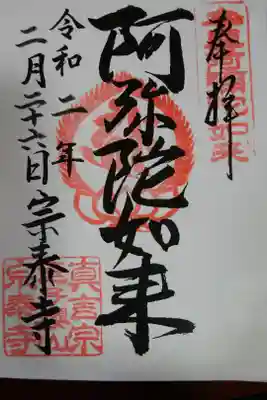 奉拝
阿弥陀如来
令和二年
二月二十六日
宗泰寺
真言宗
宗泰寺